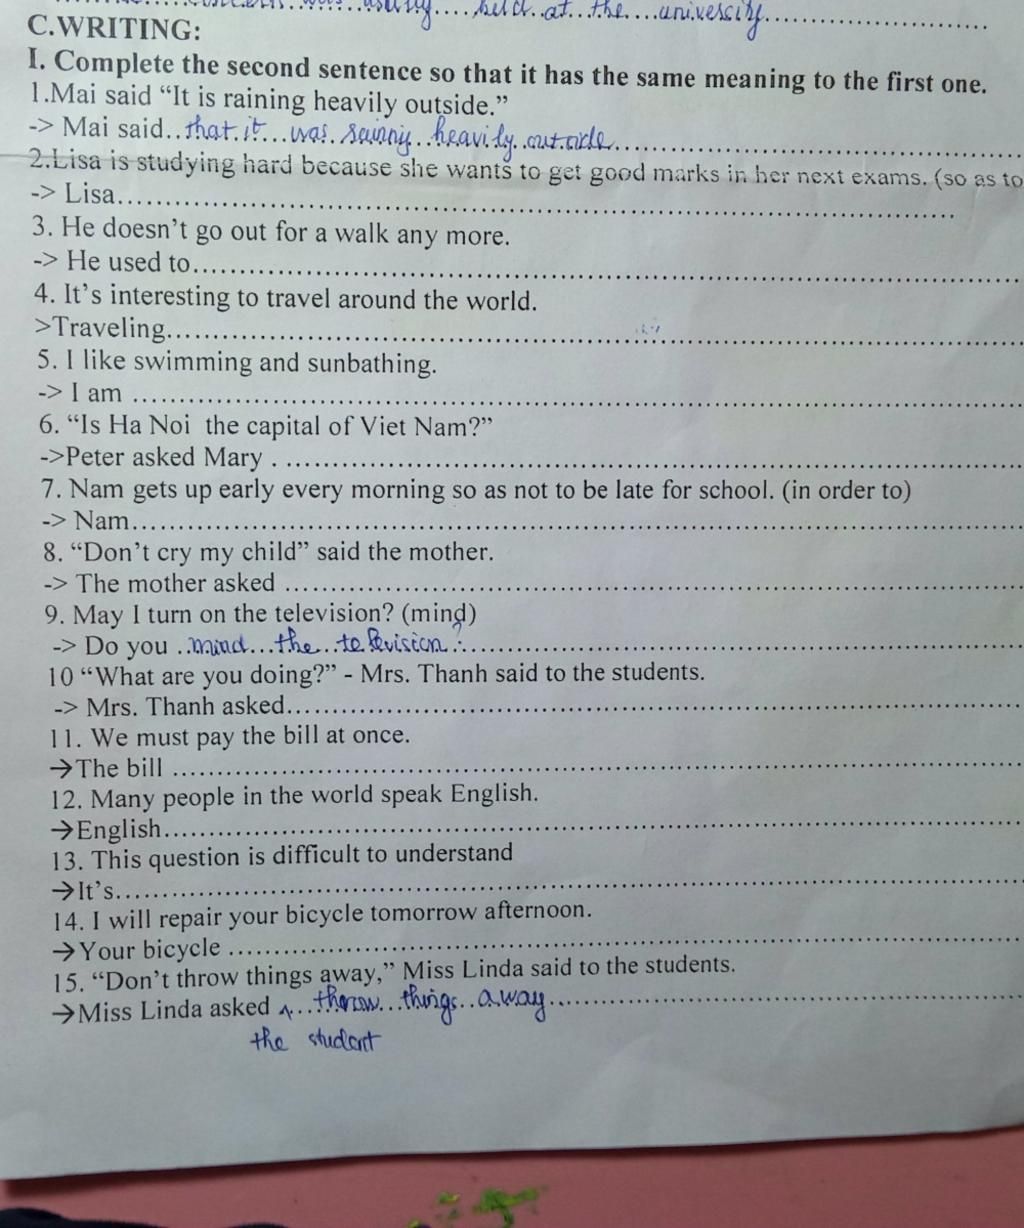 usually.... held..at...the....university...................................
C.WRITING:
I. Complete the second sentence so that it has the same meaning to the first one.
1.Mai said “It is raining heavily outside.”
-> Mai said..that.it...was...heavily..outside..........................................................
2.Lisa is studying hard because she wants to get good marks in her next exams. (so as to
-> Lisa..........................................................................................................
3. He doesn’t go out for a walk any more.
-> He used to.................................................................................................
4. It’s interesting to travel around the world.
>Traveling.....................................................................................................
5. I like swimming and sunbathing.
-> I am ..........................................................................................................
6. “Is Ha Noi the capital of Viet Nam?”
->Peter asked Mary . .....................................................................................
7. Nam gets up early every morning so as not to be late for school. (in order to)
-> Nam..........................................................................................................
8. “Don’t cry my child” said the mother.
-> The mother asked .....................................................................................
9. May I turn on the television? (mind)
-> Do you ..mind...the...television?.......................................................................
10 “What are you doing?” - Mrs. Thanh said to the students.
-> Mrs. Thanh asked.....................................................................................
11. We must pay the bill at once.
→The bill .....................................................................................................
12. Many people in the world speak English.
→English.......................................................................................................
13. This question is difficult to understand
→It’s..............................................................................................................
14. I will repair your bicycle tomorrow afternoon.
→Your bicycle ..............................................................................................
15. “Don’t throw things away,” Miss Linda said to the students.
→Miss Linda asked ...throw...things...away............................................................
the student